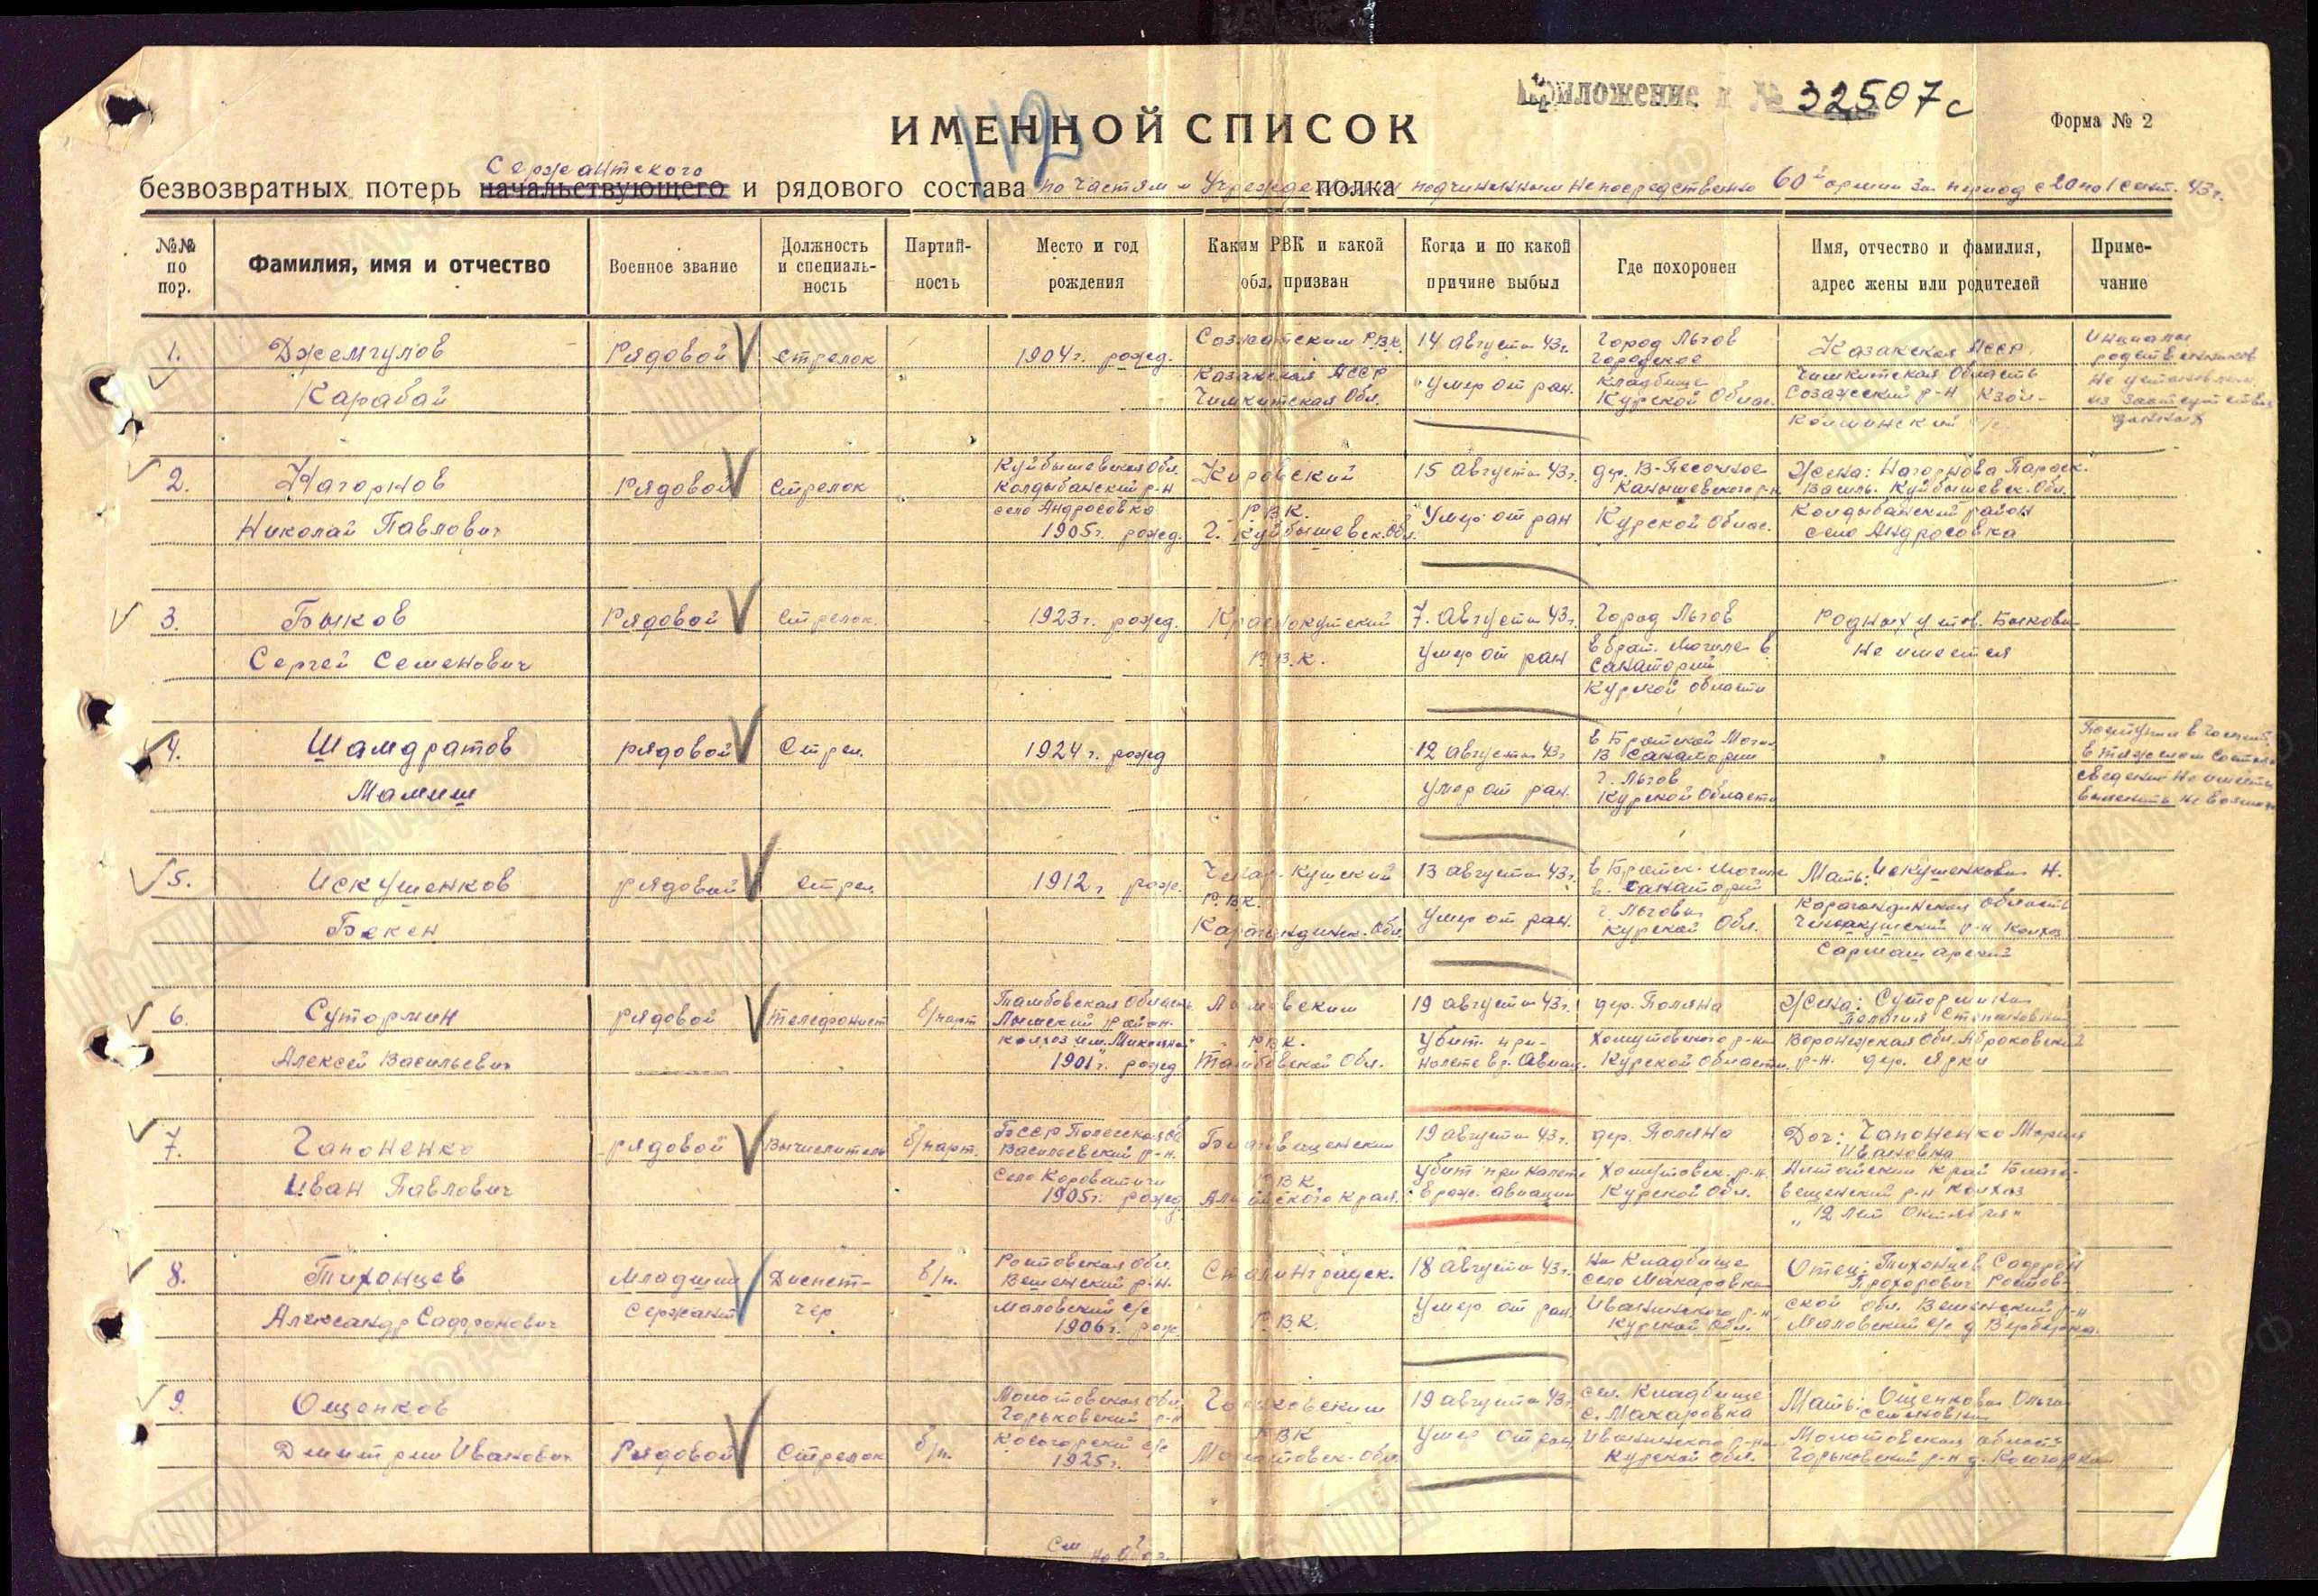 Приложение к № 32507с
Форма № 2
112
ИМЕННОЙ СПИСОК
Сержантского
безвозвратных потерь начальствующего и рядового состава по частям и Учрежде полка подчиненным непосредственно 60й армии за период с 20 по 1 сент. 43г.
№№ по пор.
Фамилия, имя и отчество
Военное звание
Должность и специальность
Партийность
Место и год рождения
Каким РВК и какой обл. призван
Когда и по какой причине выбыл
Где похоронен
Имя, отчество и фамилия, адрес жены или родителей
Примечание
1. Джемгулов Рядовой Стрелок 1904г. рожд. Созакским Р.В.К. 14 августа 43г. Город Льгов Казакская АССР Инициалы
Карабай Казакская АССР умер от ран. Городское Чимкитская Область родственников
Чимкитская Обл. кладбище Созакский р-н Кзол- не установлены
Курской Облас. Колшинский с/с из за отсутствия
данных
2. Нагорнов Рядовой Стрелок Куйбышевская Обл. Кировский 15 Августа 43г. дер. В-Песочное Жена: Нагорнова Параск.
Николай Павлович Колдыбанский р-н Р.В.К. Умер от ран Канышевского р-н Василь. Куйбышевск. Обл.
село Андросовка г. Куйбышевск. Обл. Курской Облас. Колдыбанский район
1905г. рожд. село Андросовка
3. Быков Рядовой Стрелок. 1923г. рожд. Краснокутский 7. Августа 43г. Город Льгов Родных у тов. Быкова
Сергей Семенович Р.В.К. умер от ран в брат. могиле в не имеется
Санаторий
Курской области
4. Шамдратов рядовой Стрел. 1924г. рожд 12 августа 43г в Братской Моги Поступил в госпит.
Мамиш умер от ран. в Санатории в тяжелом состоян
г. Льгов сведений не имеется
Курской Области выяснить не возмож
5. Искушенков рядовой Стрел. 1912г рожд. Р.В.К. 13 августа 43г. в Братск. могиле Мать: Искушенкова Н.
Бекен Карагандинск. Обл. умер от ран. в Санаторий Карагандинская Область
г. Льгова р-н Колхоз
Курской Обл.
6. Сутормин рядовой телефонист б/парт Тамбовская Область 19 августа 43г. дер. Поляна Жена: Сутормина
Алексей Васильевич район Р.В.К. убит при- Хомутовского р-на Пелагия Степановна
колхоз им. Микояна Тамбовской Обл. налете вр. Авиац. Курской Области. Воронежская Обл.
1901г. рожд р-н. дер. Ярки
7. Гапоненко рядовой Вычислитель б/парт. БССР Полесская об Благовещенским 19 августа 43г. дер. Поляна Доч: Гапоненко Мария
Иван Павлович Васильевский р-н. РВК убит при налете Хомутовск. р-н. Ивановна
Село Короватичи Алтайского края. враж. авиации Курской Обл. Алтайский край Благо-
1905г. рожд. вещенский р-н колхоз
„12 лет Октября"
8. Тихонцев Младший Диспет- б/п. Ростовская Обл. Сталинградск. 18 августа 43г. на Кладбище Отец: Тихонцев Сафрон
Александр Сафронович Сержант чер Вешенский р-н. Р.В.К. умер от ран. село Макаровка Прохорович Ростов-
Маловский с/с Иванинского р-н ской обл. Вешенский р-н
1906г. рож. Курской Обл. Маловский с/с д
9. Ощепков Молотовская Обл. 19 августа 43г сел. Кладбище Мать: Ощепкова Ольга
Дмитрий Иванович Рядовой Стрелок б/п. Горьковский р-н РВК умер от ран с. Макаровка Семеновна
Косогорский с/с Молотовск. Обл. Иванинского р-на Молотовская область
1925г. Курской Обл. Горьковский р-н д.
См на об.